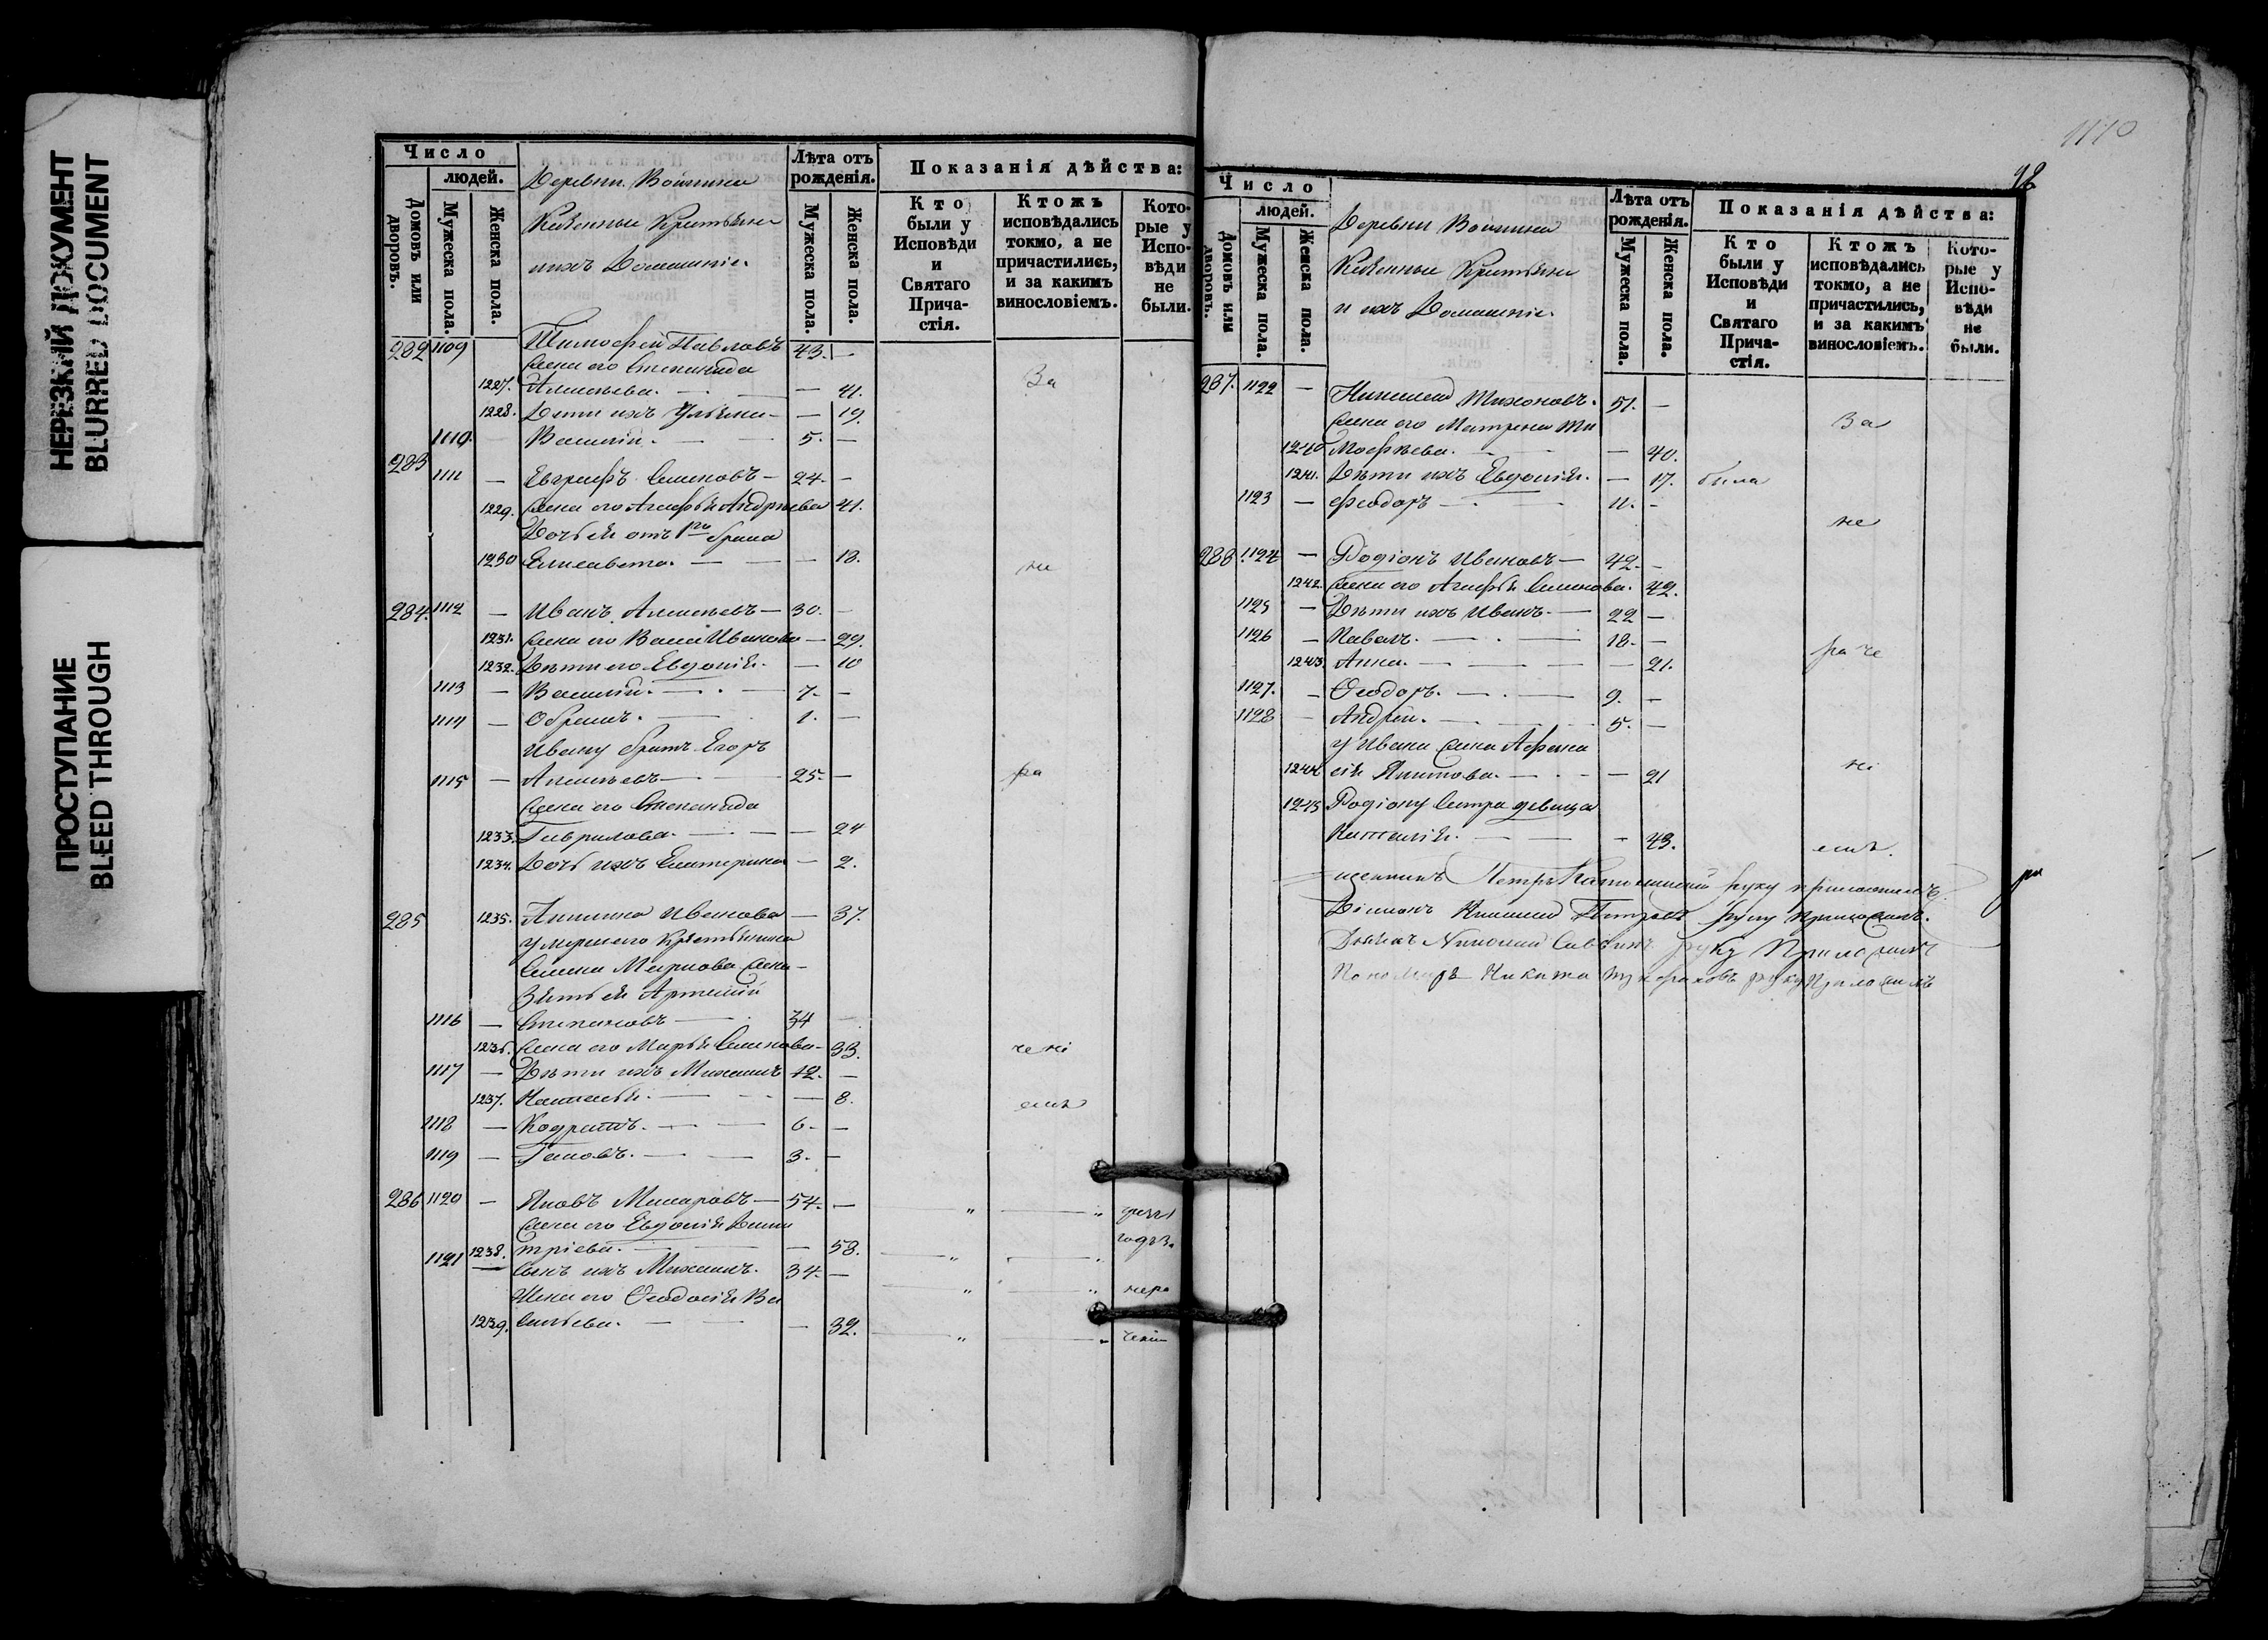 НЕРЕЗКИЙ ДОКУМЕНТ
BLURRED DOCUMENT
ПРОСТУПАНИЕ
BLEED THROUGH
Число
людей.
Домовъ или дворовъ.
Мужеска пола.
Женска пола.
Деревни
Лѣта отъ рожденія.
Мужеска пола.
Женска пола.
Показанія дѣйства:
Кто были у Исповѣди и Святаго Прича-стія.
Ктожъ исповѣдались токмо, а не причастились, и за какимъ винословіемъ.
Кото-рые у Испо-вѣди не были.
ихъ Домашніе.
282 1109 Тимофей Павловъ 43. —
Жена его Степанида
1227. Алексѣева. — 41. За
1228. Дѣти ихъ Ульяна — — 19.
1110. — Василій. — 5. —
283 1111 — Евграфъ Семеновъ — 24. —
1229. Жена его Агафья Андрѣева 41.
Дочь ея отъ 1го брака
1230 Елисавета. — — 18. не
284. 1112 — Иванъ Алексѣевъ — 30. —
1231. Жена его Васса Иванова — 29.
1232. Дѣти его Евдокія. — 10
1113 — Василій. — 7. —
1114 — Ефремъ. — 1. —
Ивану братъ Егоръ
1115 — Алексѣевъ — 25. — ра
Жена его Степанида
1233. Гаврилова. — — 24
1234. Дочь ихъ Екатерина — 2.
285 1235. Акилина Иванова — 37.
умершего Крестьянина
Семена Маркова Жена —
Зять ея Артемій
1116 — Степановъ — 34 —
1236. Жена его Марья Семенова — 33. чені
1117 — Дѣти ихъ Михаилъ 12. —
1237. Наталья. — — 8. емъ
1118 — Кодратъ. — 6. —
1119 — Іаковъ. — 3. —
286 1120 — Яковъ Макаровъ — 54. —
Жена его Евдокія Дими
1238. тріева. — 58.
1121 Сынъ ихъ Михаилъ. 34. —
Жена его Ѳеодосія Ва
1239. сильева. — — 32.
нера
ченіи
1110
98
Число
людей.
Домовъ или дворовъ.
Мужеска пола.
Женска пола.
Деревни
Лѣта отъ рожденія.
Мужеска пола.
Женска пола.
Показанія дѣйства:
Кто были у Исповѣди и Святаго Прича-стія.
Ктожъ исповѣдались токмо, а не причастились, и за какимъ винословіемъ.
Кото-рые у Испо-вѣди не были.
и ихъ Домашніе.
287. 1122 — Николай Тихоновъ. 51. —
Жена его Матрена Ти За
1240 мофѣева. — — 40.
1241. Дѣти ихъ Евдокія. — 17. была
1123 — Феодоръ — 11. —
не
288. 1124 — Родіонъ Ивановъ — 42. —
1242. Жена его Агафья Семенова. 42.
1125 — Дѣти ихъ Иванъ. — 22 —
1126 — Павелъ. — 18. —
1243. Анна. — — 21. раче
1127. — Ѳеодоръ. — 9. —
1128 — Андрей. — 5. —
у Ивана Жена Афана
1244 сія Никитова. — — 21 ні
1245 Родіону Сестра девица
Наталія. — — 43. емъ.
Священникъ Петръ руку приложилъ
Діаконъ Николай Петровъ руку приложилъ.
Дьячекъ Николай руку Приложилъ
Пономарь Никита руку Приложилъ